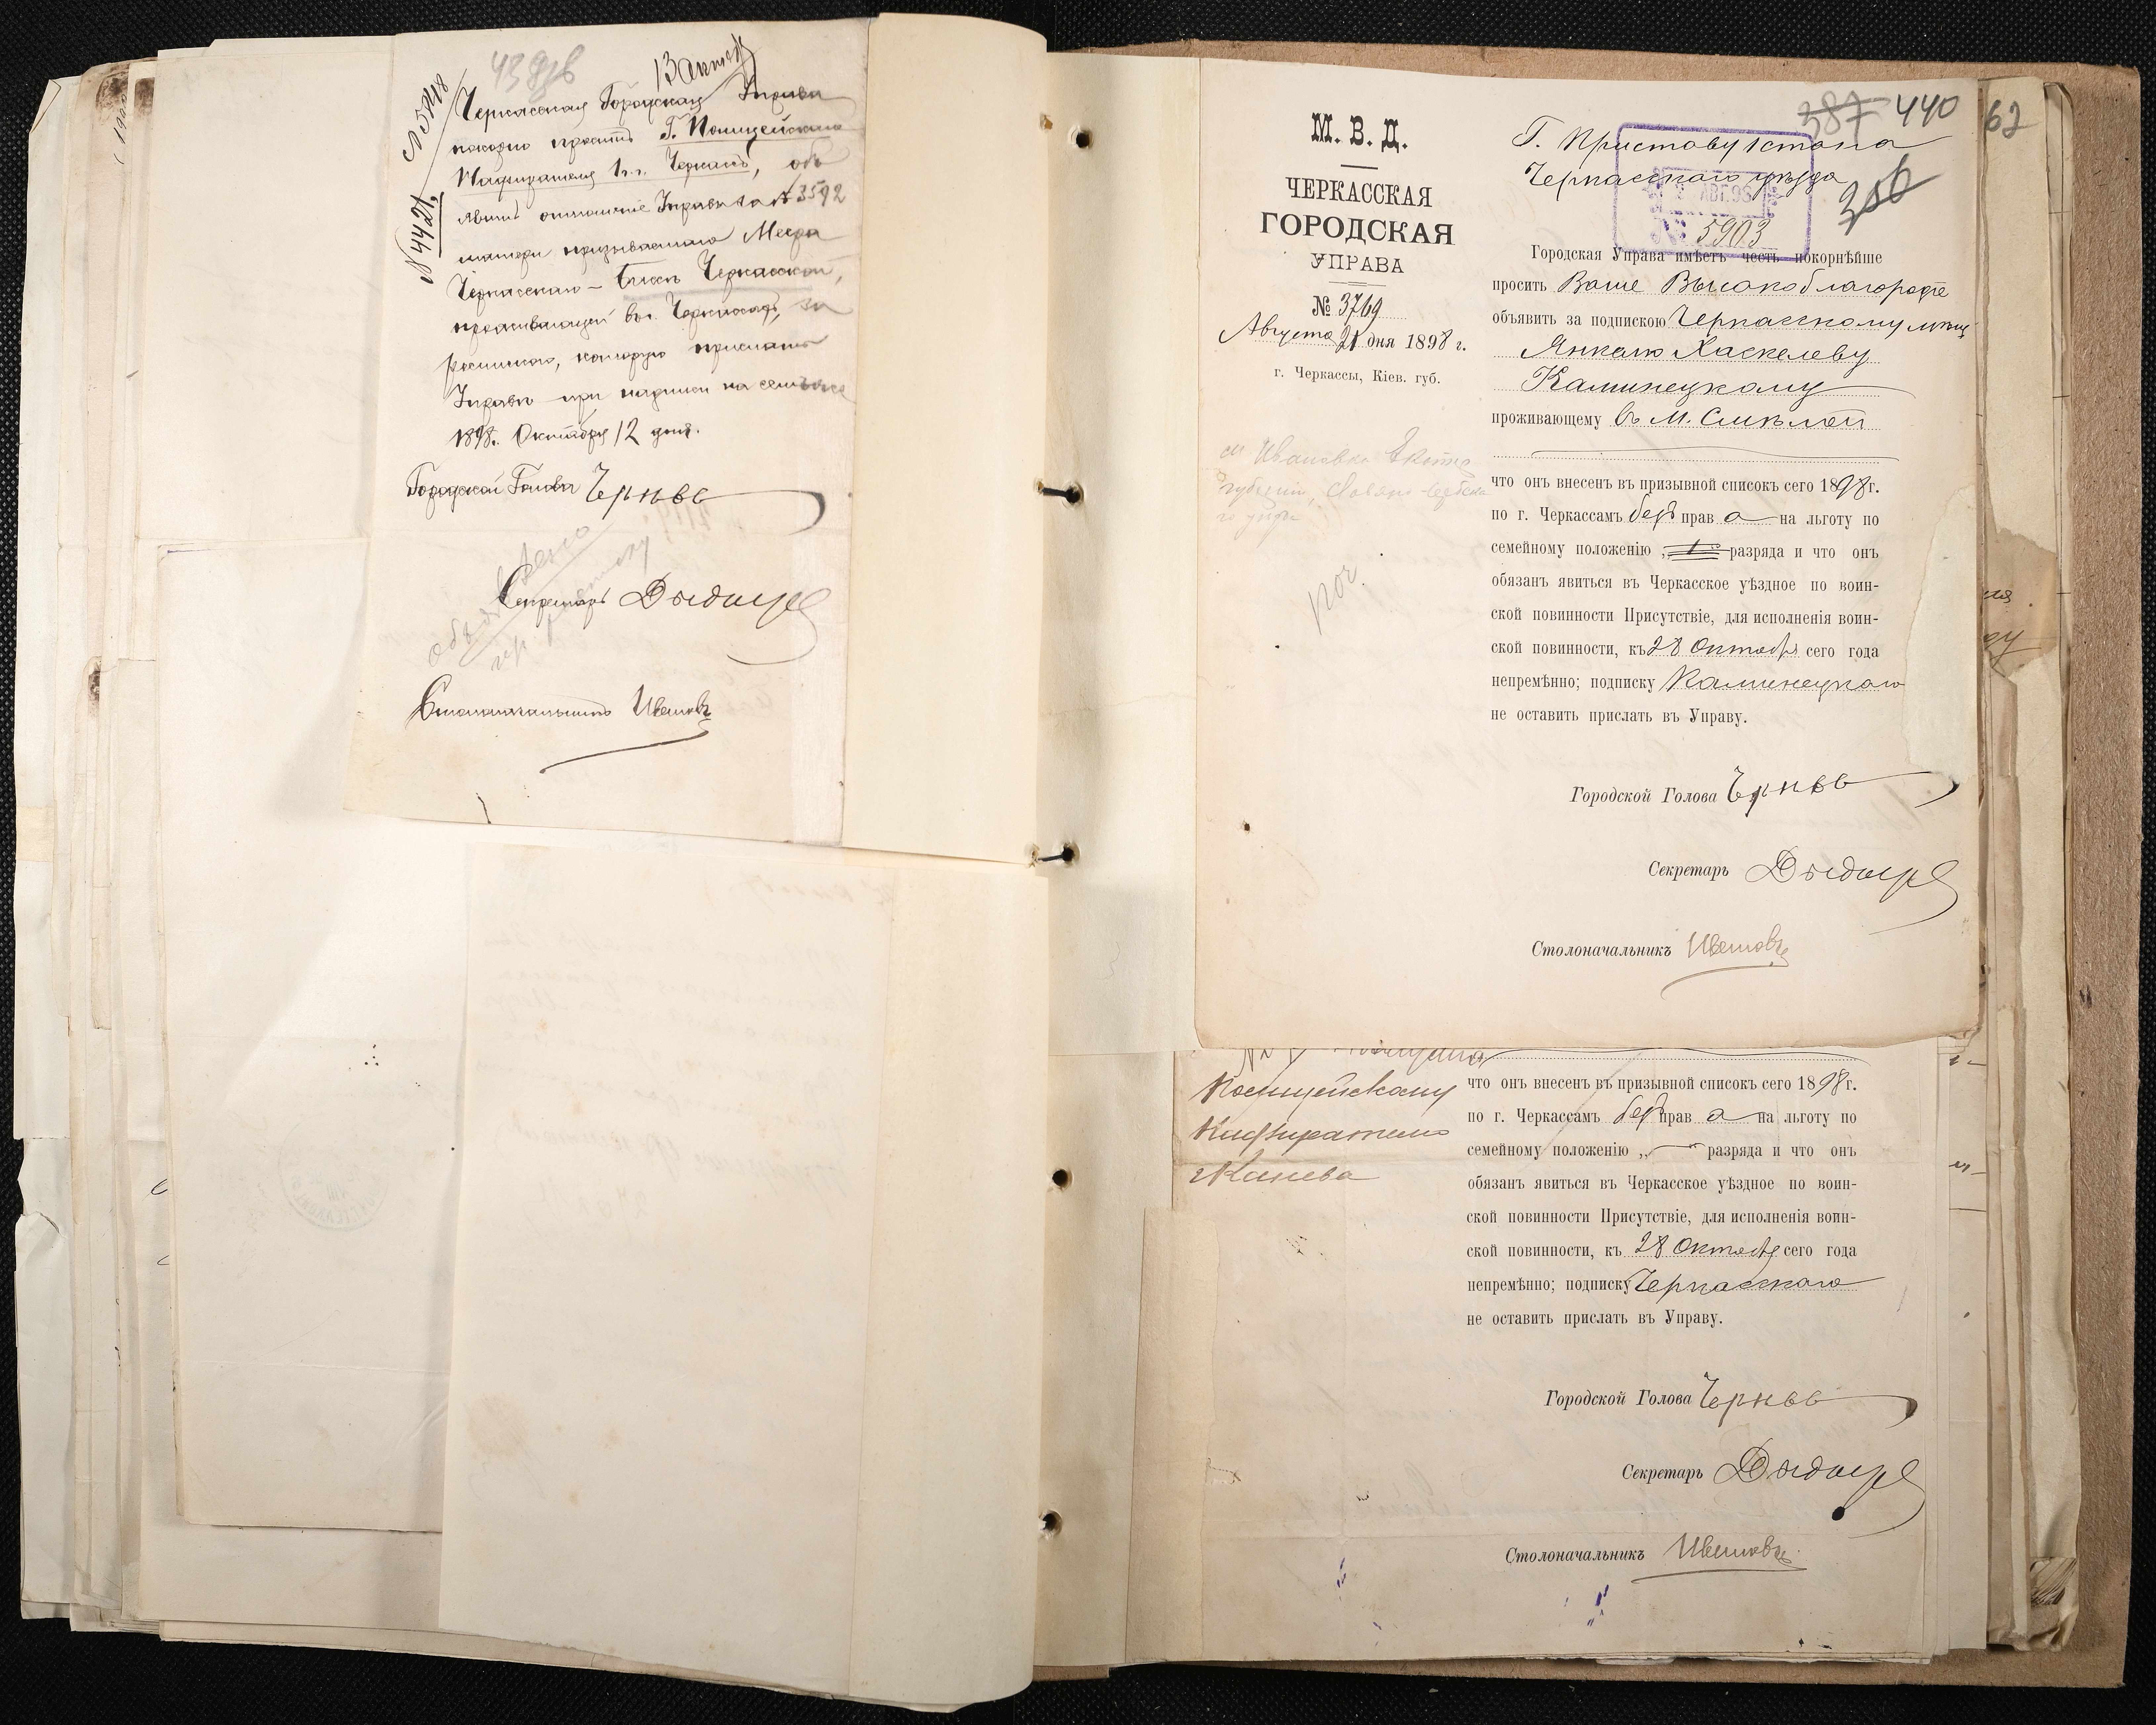 43
13 октяб
№ 5848
№ 4421
Черкасская Городская Управа
покорно просит Г. Полицейскаго
Надзирателя 1 ч. г. Черкасъ, объ
явить отношение Управы за № 3592
матери призываемаго Меера
Черкасскаго – Бисѣ Черкасской,
проживающей въ г. Черкассахъ, за
роспискою, которую прислать
Управѣ при надписи на семъ же
1898 г. Октября 12 дня.
Городской Голова Чернявъ
Секретарь
Столоначальникъ Ивановъ
М. В. Д.
ЧЕРКАССКАЯ
ГОРОДСКАЯ
УПРАВА
№ 3769
Августа 21 дня 1898 г.
г. Черкассы, Кіев. губ.
387 440
62
356
Г. Приставу 1 стана
Черкасскаго уѣзда
АВГ. 98
№ 5903
Городская Управа имѣетъ честь покорнѣйше
просить Ваше Высокоблагородіе
объявить за подпискою Черкасскому мѣщ
Янкелю Хаскелеву
Каминецкому
проживающему въ М. Смѣлой
что онъ внесенъ въ призывной списокъ сего 1898 г.
по г. Черкассамъ безъ права на льготу по
семейному положенію „ 1 разряда и что онъ
обязанъ явиться въ Черкасское уѣздное по воин-
ской повинности Присутствіе, для исполненія воин-
ской повинности, къ 28 Октября сего года
непремѣнно; подписку Каминецкаго
не оставить прислать въ Управу.
Городской Голова Чернявъ
Секретарь
Столоначальникъ Ивановъ
Полицейскому
Надзирателю
г Канева
что онъ внесенъ въ призывной списокъ сего 1898 г.
по г. Черкассамъ безъ права на льготу по
семейному положенію „ разряда и что онъ
обязанъ явиться въ Черкасское уѣздное по воин-
ской повинности Присутствіе, для исполненія воин-
ской повинности, къ 28 Октября сего года
непремѣнно; подписку Черкасскаго
не оставить прислать въ Управу.
Городской Голова Чернявъ
Секретарь
Столоначальникъ Ивановъ